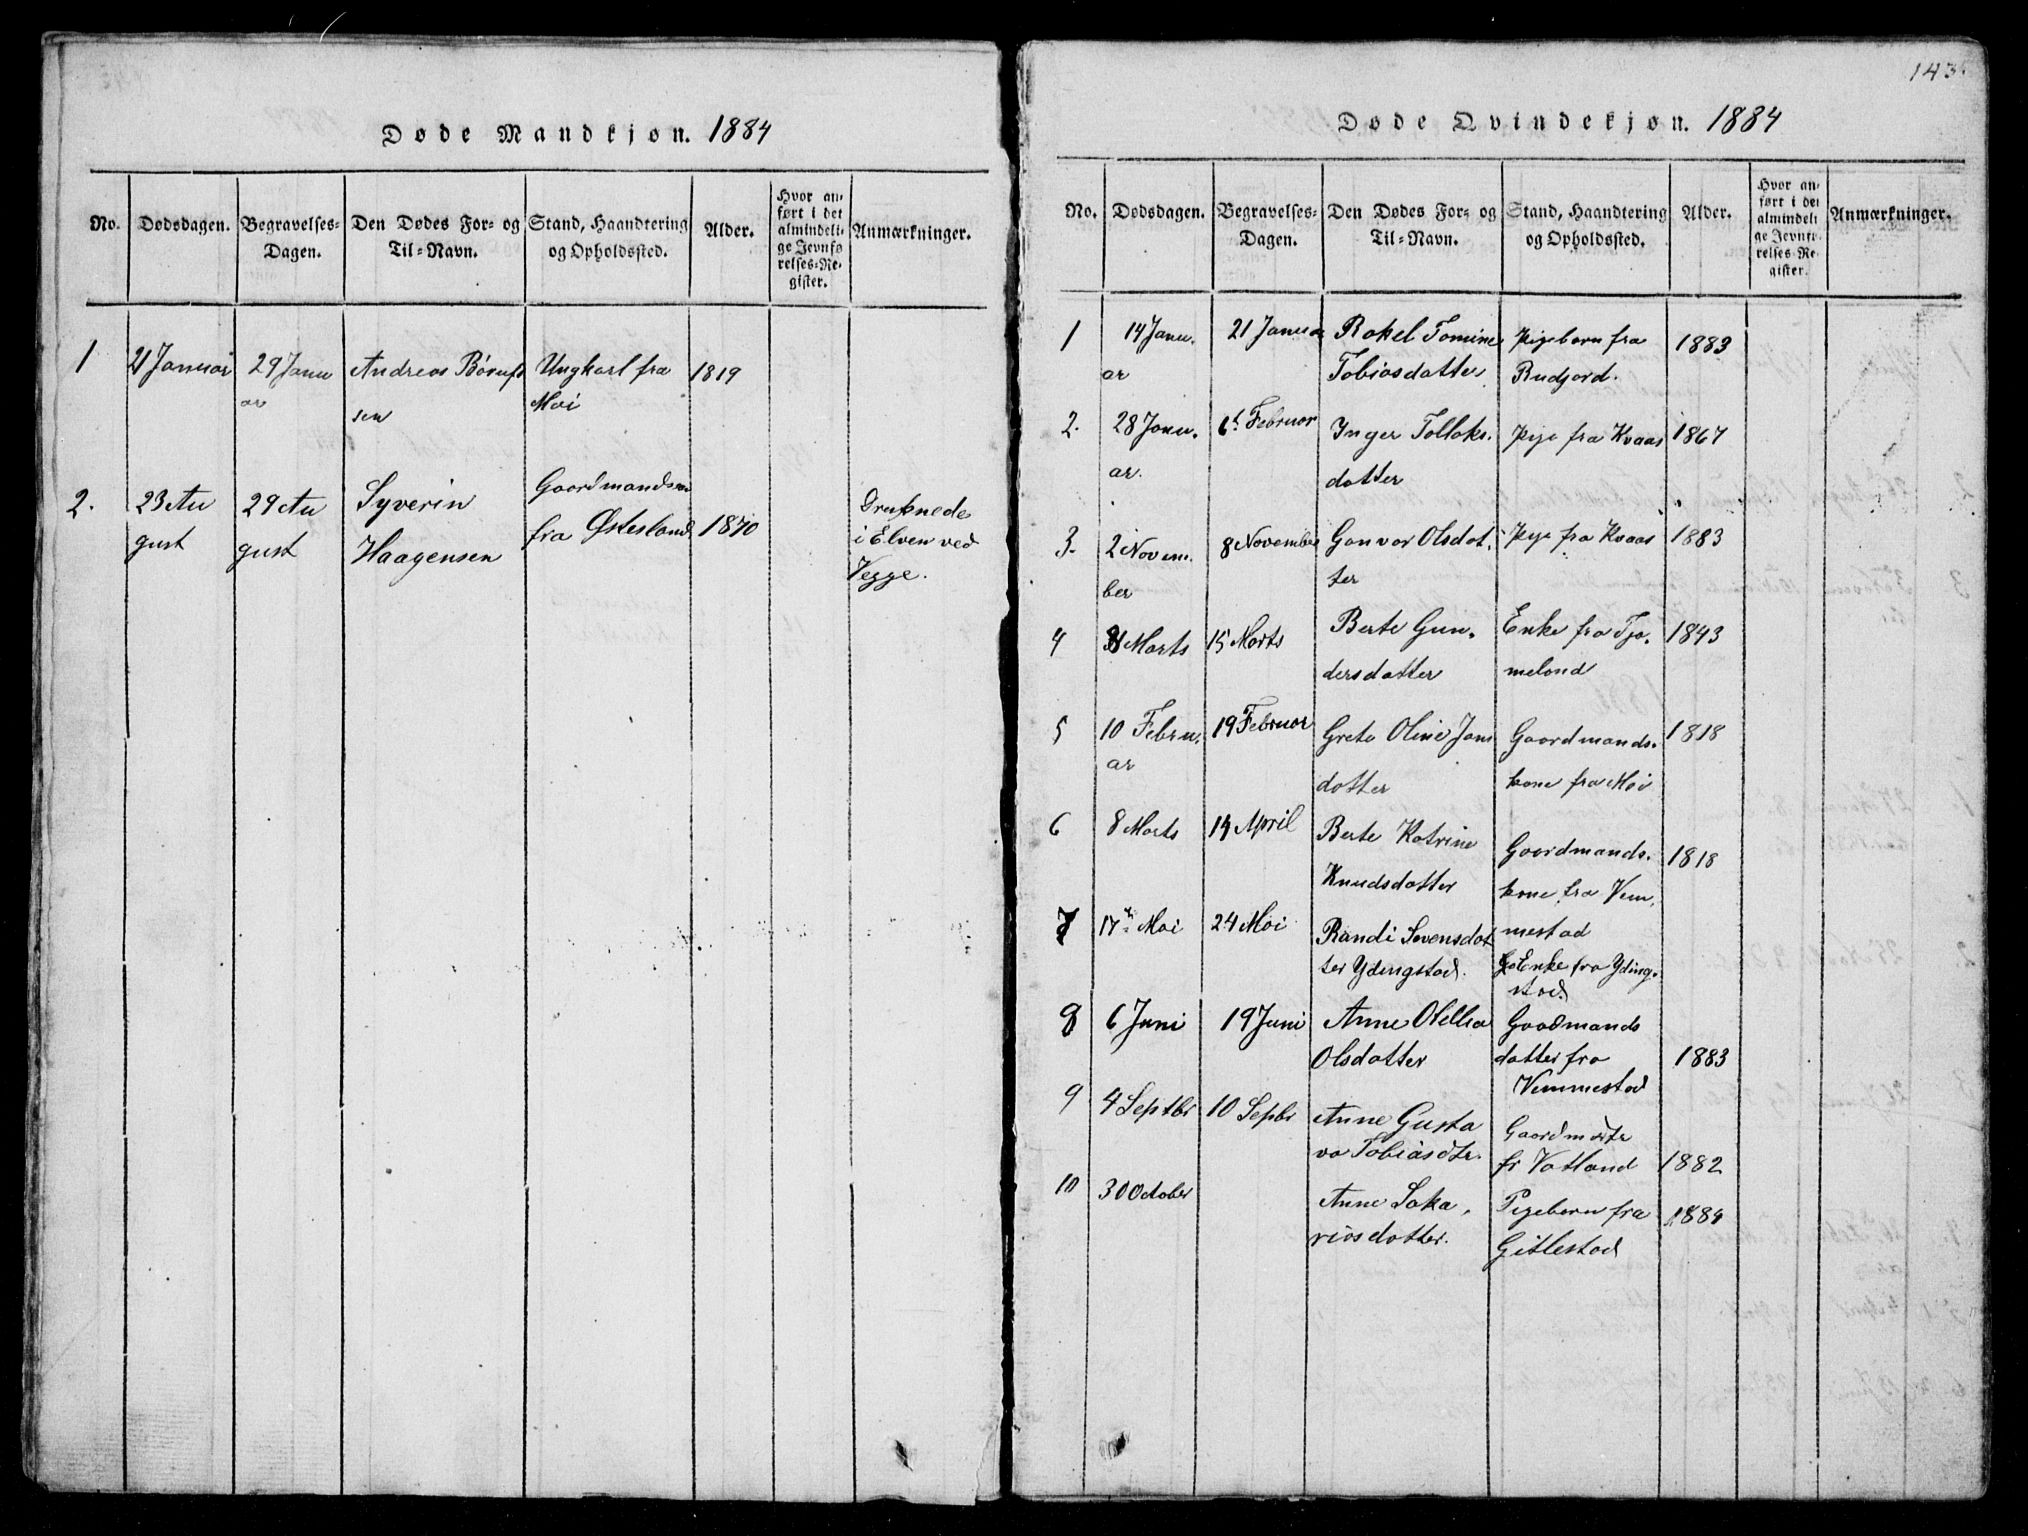 Døde Mandkjøn. 1884
No.
Dødsdagen.
Begravelses-
Dagen.
Den Dødes For- og
Til-Navn.
Stand, Haandtering
og Opholdssted.
Alder.
Hvor an-
ført i det
almindeli-
ge Jevnfø
relses-Re-
gister.
Anmærkninger.
1
21 Januar
29 Janu
ar
Andreas
sen
Ungkarl fra
Moi
1819
2.
23 Au
gust
29 Au
gust
Syverin
Haagensen
Gaardmandssøn
fra Østesland
1870
Druknede
i Elven ved
Vegge.
143
Døde Qvindekjøn. 1884
No.
Dødsdagen.
Begravelses-
Dagen.
Den Dødes For- og
Til-Navn.
Stand, Haandtering
og Opholdssted.
Alder.
Hvor an-
ført i det
almindeli
ge Jevnfø-
relses-Re-
gister.
Anmærkninger.
1
14 Janu.
ar
21 Januar
Rakel Tomine
Tobiasdatter
Pigebarn fra
Rudjord.
1883
2.
28 Janu.
ar.
6t Februar
Inger Tolloks.
datter
Pige fra Kvaas
1867
3.
2 Novem.
ber
8 November
Gonvor Olsdat.
ter
Pige fra Kvaas
1883
4
8 Marts
15 Marts
Berte Gun.
dersdatter
Enke fra Tjo.
meland
1843
5
10 Febru.
ar
19 Februar
Grete Oline Jans
datter
Gaardmands.
kone fra Moi
1818
6
8 Marts
14 April
Berte Katrine
Knudsdatter
Gaardmands.
kone fra Vem.
mestad
1818
7
17de Mai
24 Mai
Randi Svensdat
ter Ydingstad.
Enke fra Yding.
stad.
8
6 Juni
19 Juni
Anne Olellia
Olsdatter
Gaadmands
datter fra
Vemmestad
1883
9
4 Septbr
10 Sepbr
Anne Gusta
va Tobiasdtr.
Gaardm dtr
fr Vatland
1882
10
30 October
Anne Saka.
riasdatter.
Pigebarn fra
Gitlestad
1884